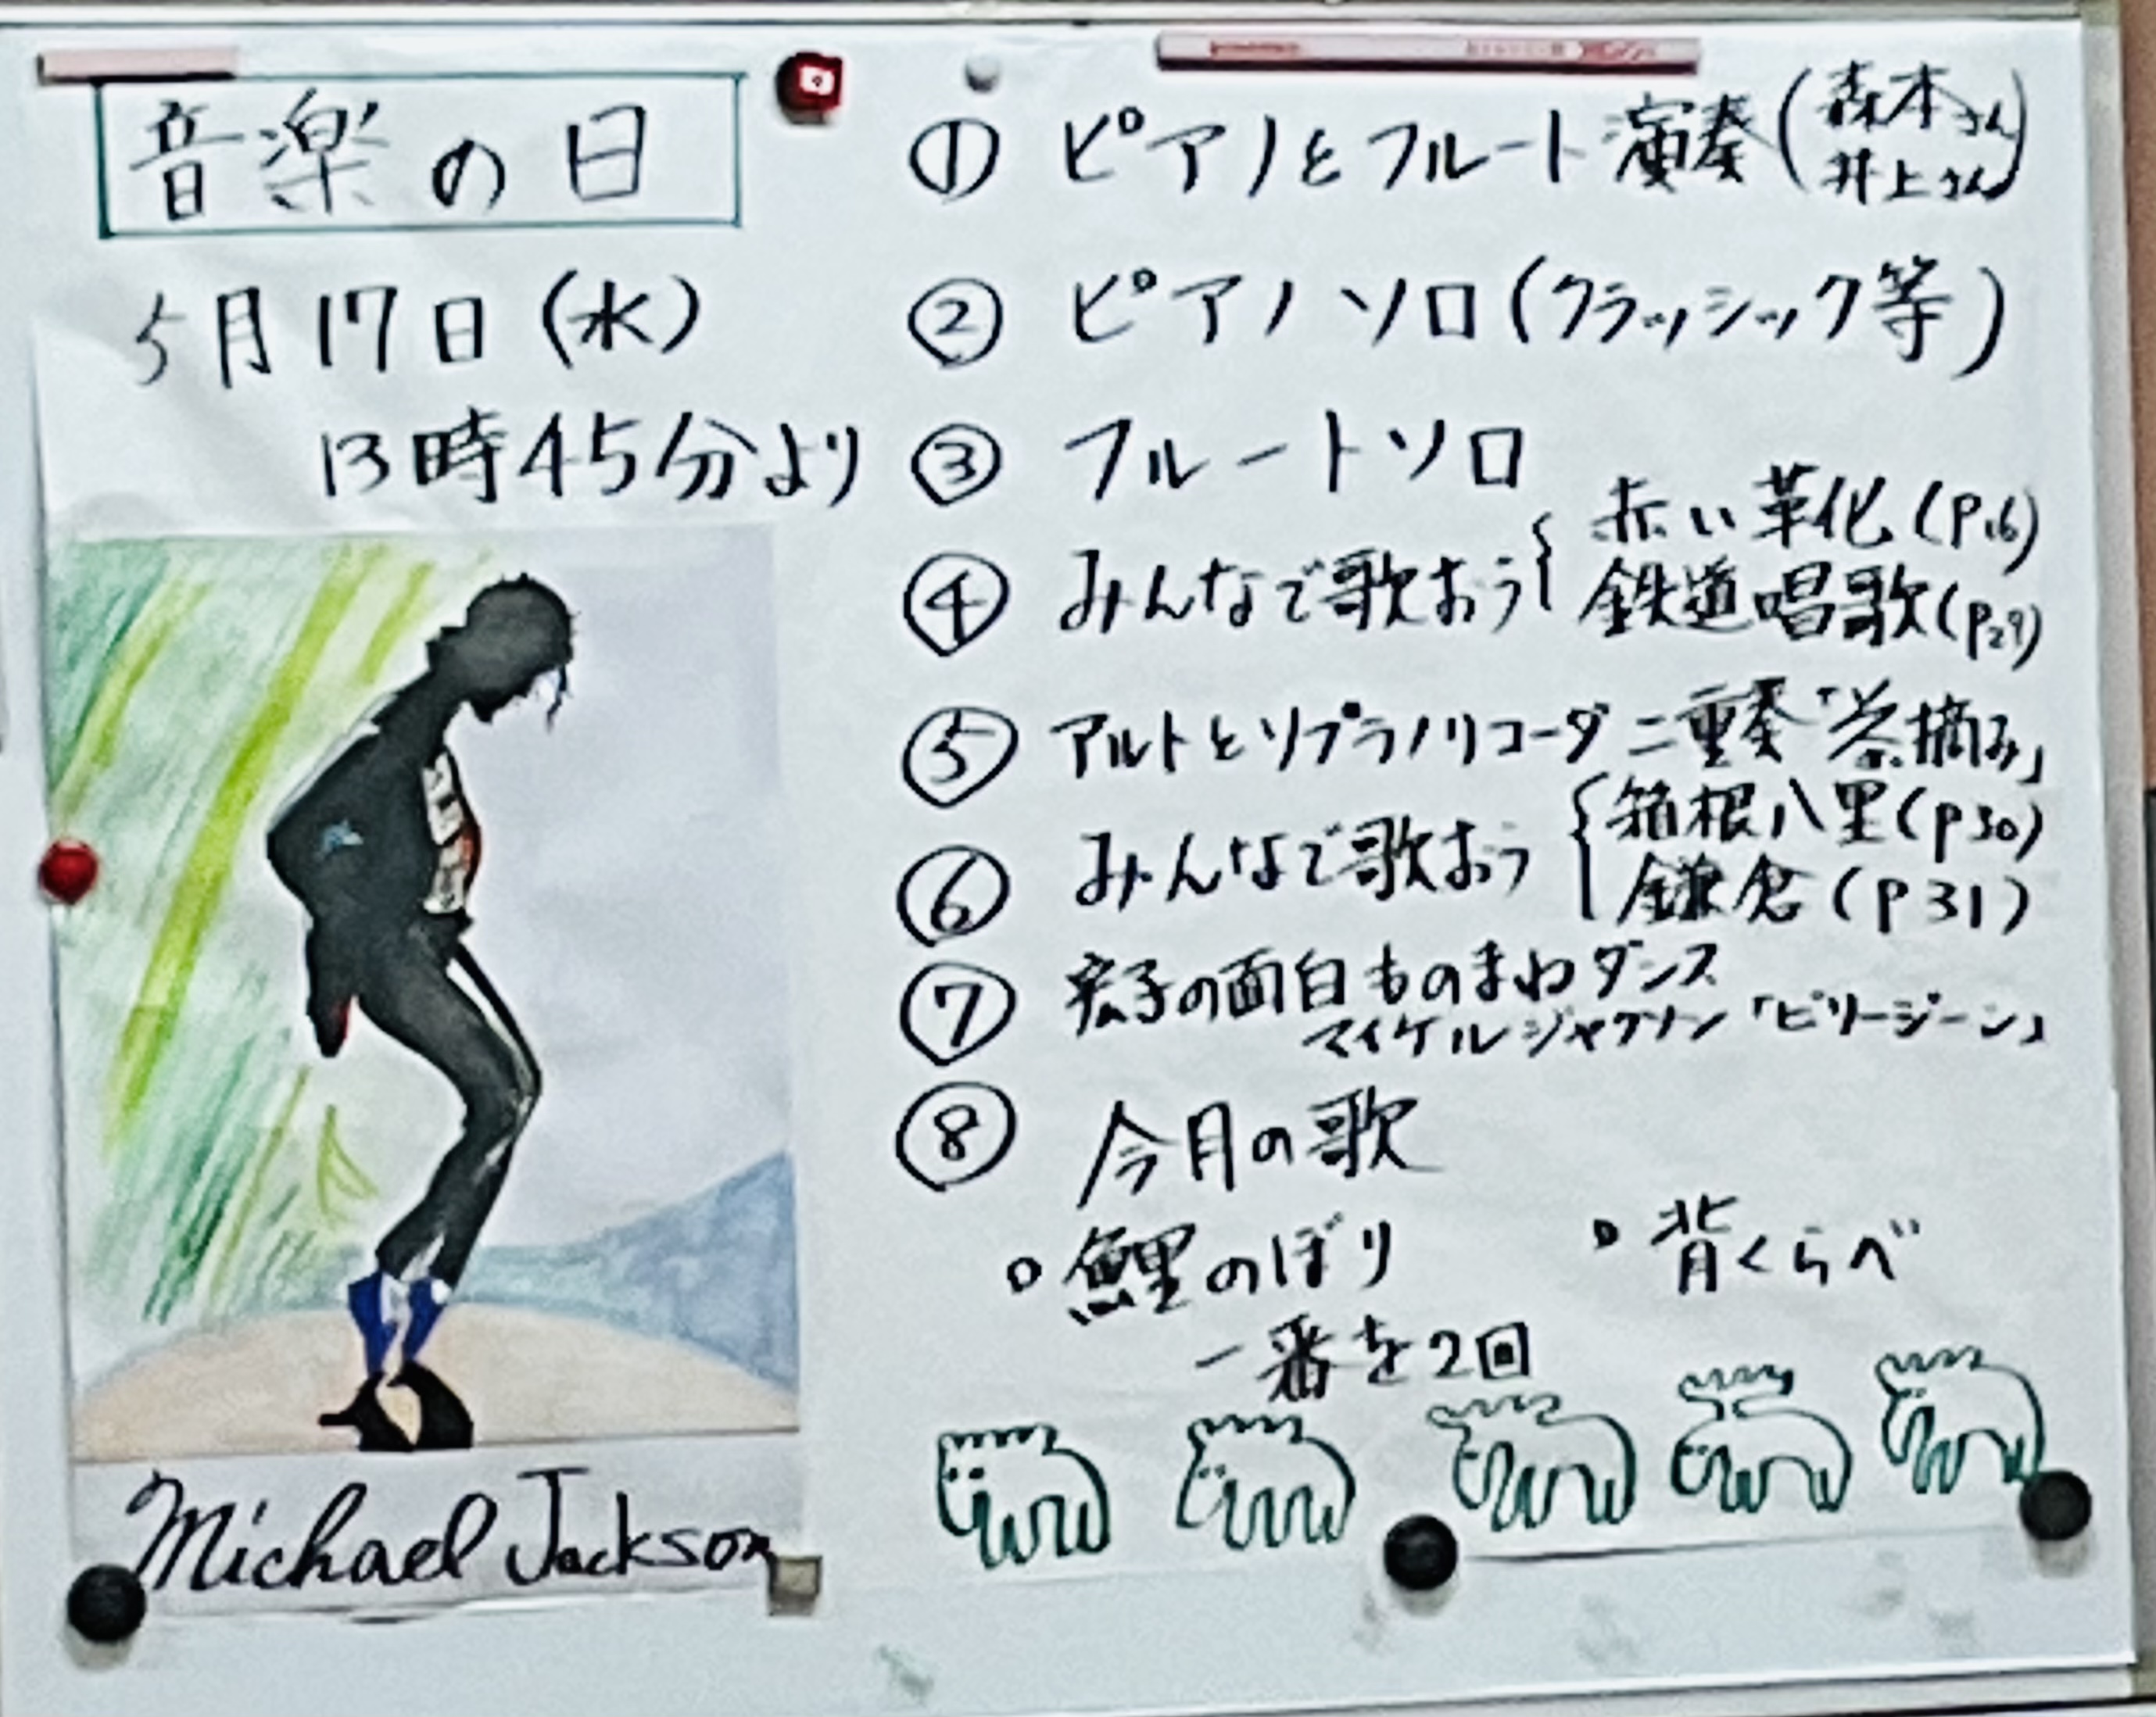 音楽の日
5月17日(水)
13時45分より
Michael Jackson
① ピアノとフルート演奏(森本さん 井上さん)
② ピアノソロ(クラッシック等)
③ フルートソロ
④ みんなで歌おう{赤い革化(P.16)
鉄道唱歌(P29)
⑤ アルトとソプラノリコーダ二重奏「茶摘み」
⑥ みんなで歌おう{箱根八里(P30)
鎌倉(P31)
⑦ 宏子の面白ものまねダンス
マイケルジャクソン「ビリージーン」
⑧ 今月の歌
○鯉のぼり ○背くらべ
一番を2回